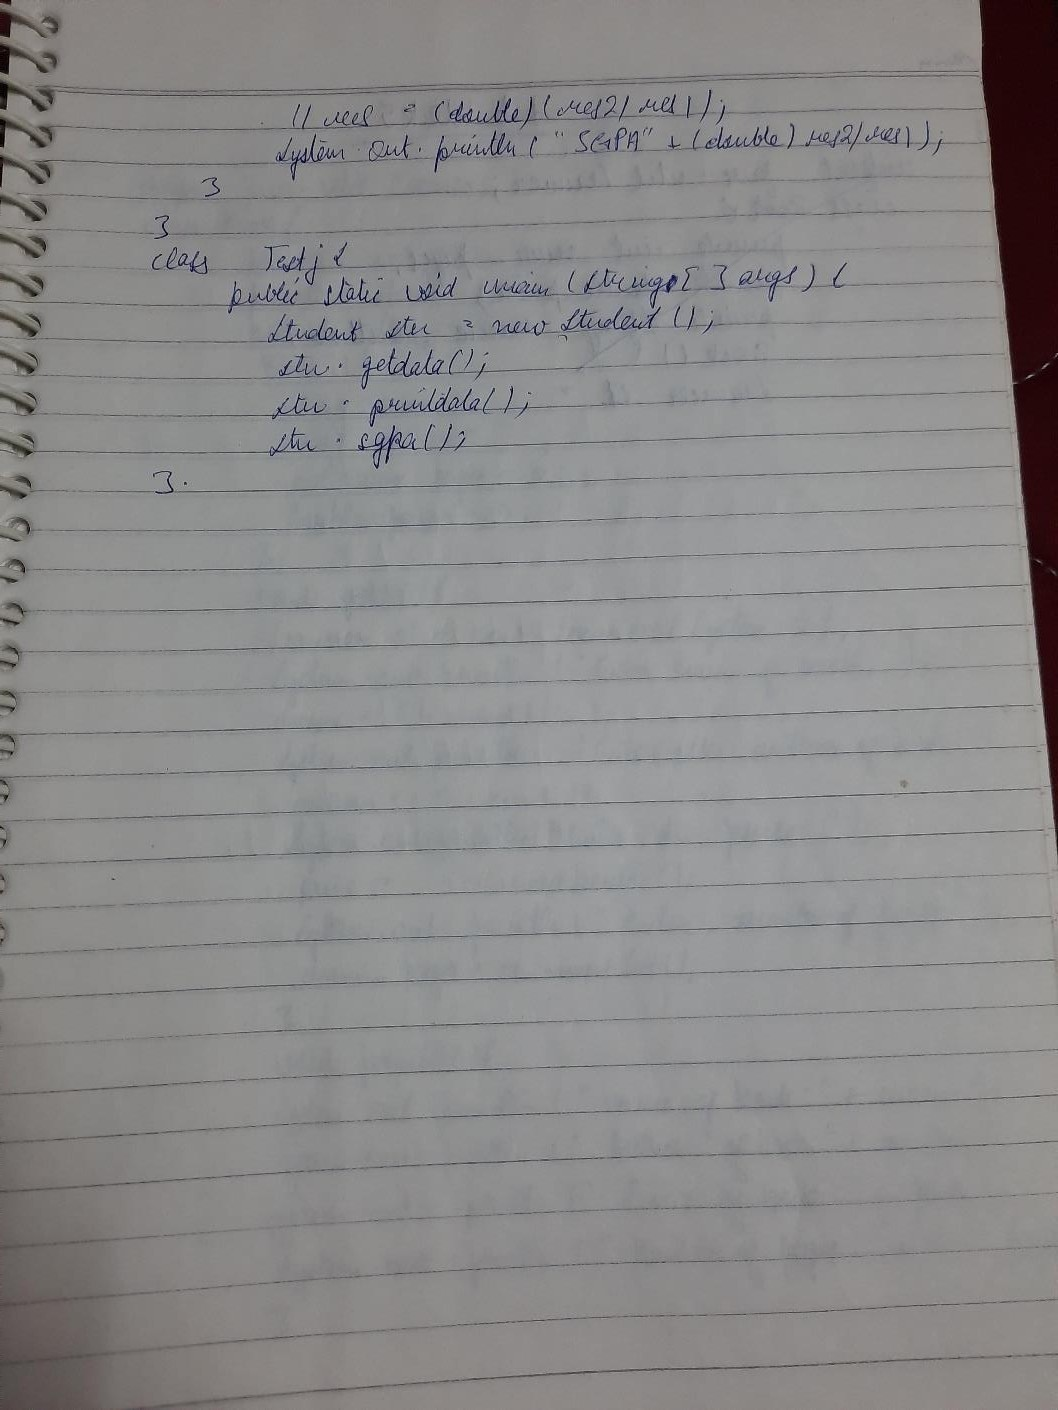 // res = (double)(res2/res1);
System.out.println("SGPA" + (double)res2/res1);
}
}
class Testj {
public static void main (String[] args) {
Student stu = new Student();
stu.getdata();
stu.printdata();
stu.sgpa();
}.